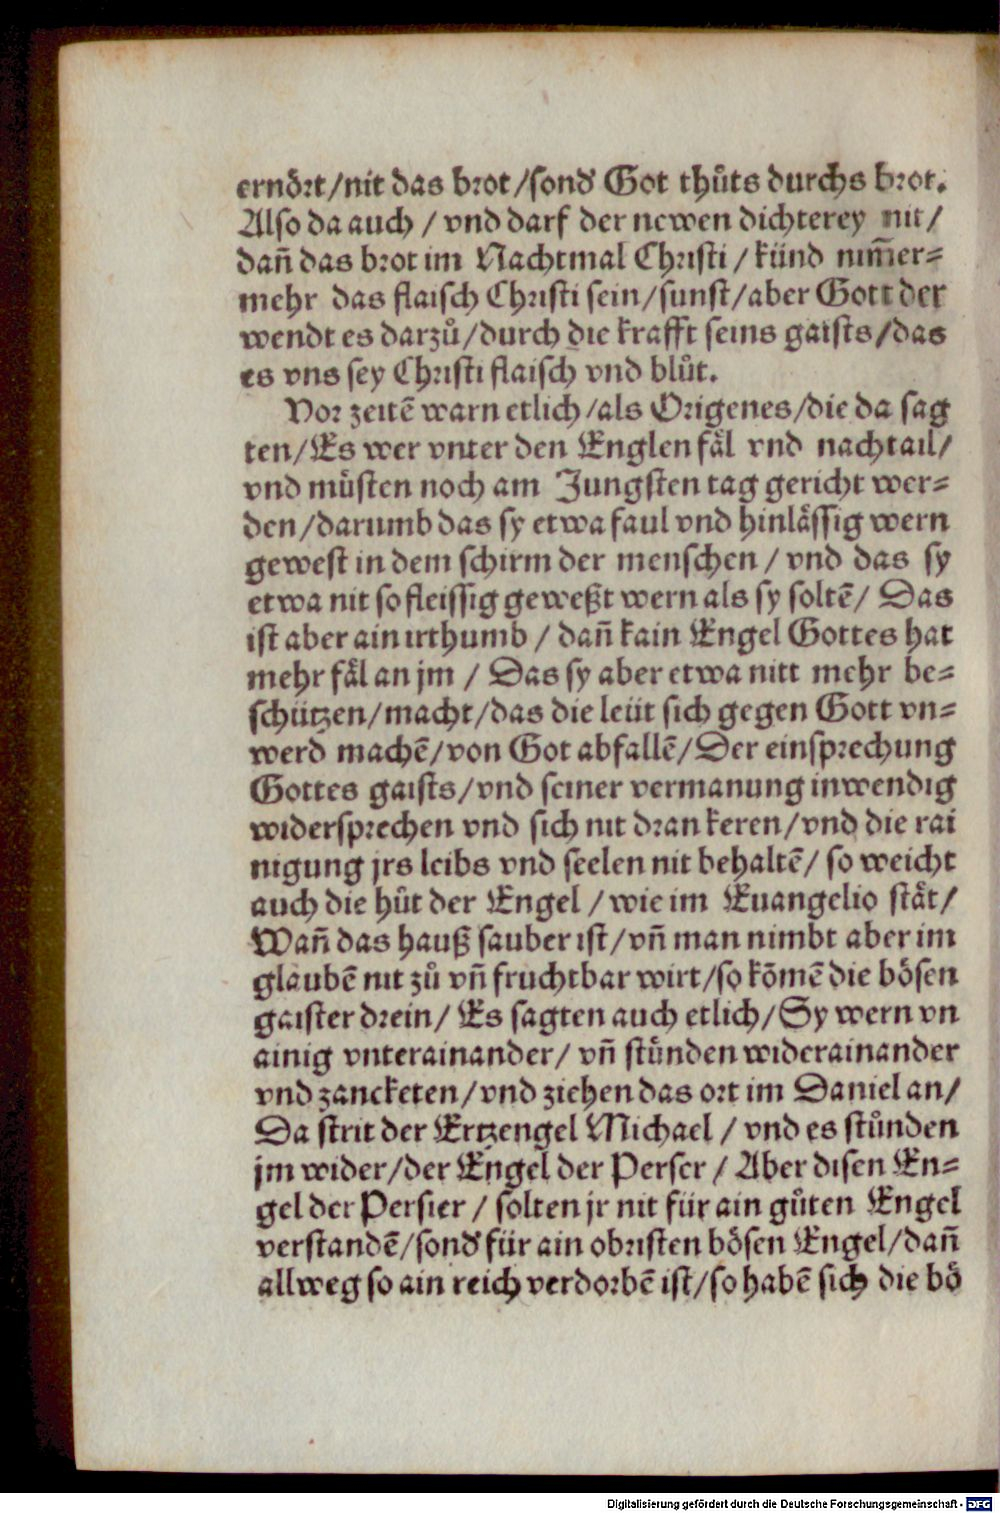 ernoͤrt/nit das brot/sond' Got thuͦts durchs brot.
Also da auch / vnd darf der newen dichterey nit/
dañ das brot im Nachtmal Christi / kuͤnd nim̃er⸗
mehr das flaisch Christi sein/sunst/aber Gott der
wendt es darzuͦ/durch die krafft seins gaists/das
es vns sey Christi flaisch vnd bluͦt.
Vor zeitē warn etlich/als Origenes/die da sag
ten/Es wer vnter den Englen faͤl vnd nachtail/
vnd muͤsten noch am Jungsten tag gericht wer⸗
den/darumb das sy etwa faul vnd hinlaͤssig wern
gewest in dem schirm der menschen / vnd das sy
etwa nit so fleissig geweßt wern als sy soltē/ Das
ist aber ain irthumb / dañ kain Engel Gottes hat
mehr faͤl an jm / Das sy aber etwa nitt mehr be⸗
schützen/macht/das die leüt sich gegen Gott vn⸗
werd machē/von Got abfallē/Der einsprechung
Gottes gaists/vnd seiner vermanung inwendig
widersprechen vnd sich nit dran keren/vnd die rai
nigung jrs leibs vnd seelen nit behaltē/ so weicht
auch die huͦt der Engel / wie im Euangelio staͤt/
Wañ das hauß sauber ist/vñ man nimbt aber im
glaubē nit zuͦ vñ fruchtbar wirt/so kōmē die boͤsen
gaister drein/ Es sagten auch etlich/Sy wern vn
ainig vnterainander/ vñ stuͤnden widerainander
vnd zancketen/vnd ziehen das ort im Daniel an/
Da strit der Ertzengel Michael / vnd es stuͤnden
jm wider/der Engel der Perser / Aber disen En⸗
gel der Persier / solten jr nit für ain guͦten Engel
verstandē/sond' für ain obristen boͤsen Engel/dañ
allweg so ain reich verdorbē ist/so habē sich die boͤ
Digitalisierung gefördert durch die Deutsche Forschungsgemeinschaft - DFG